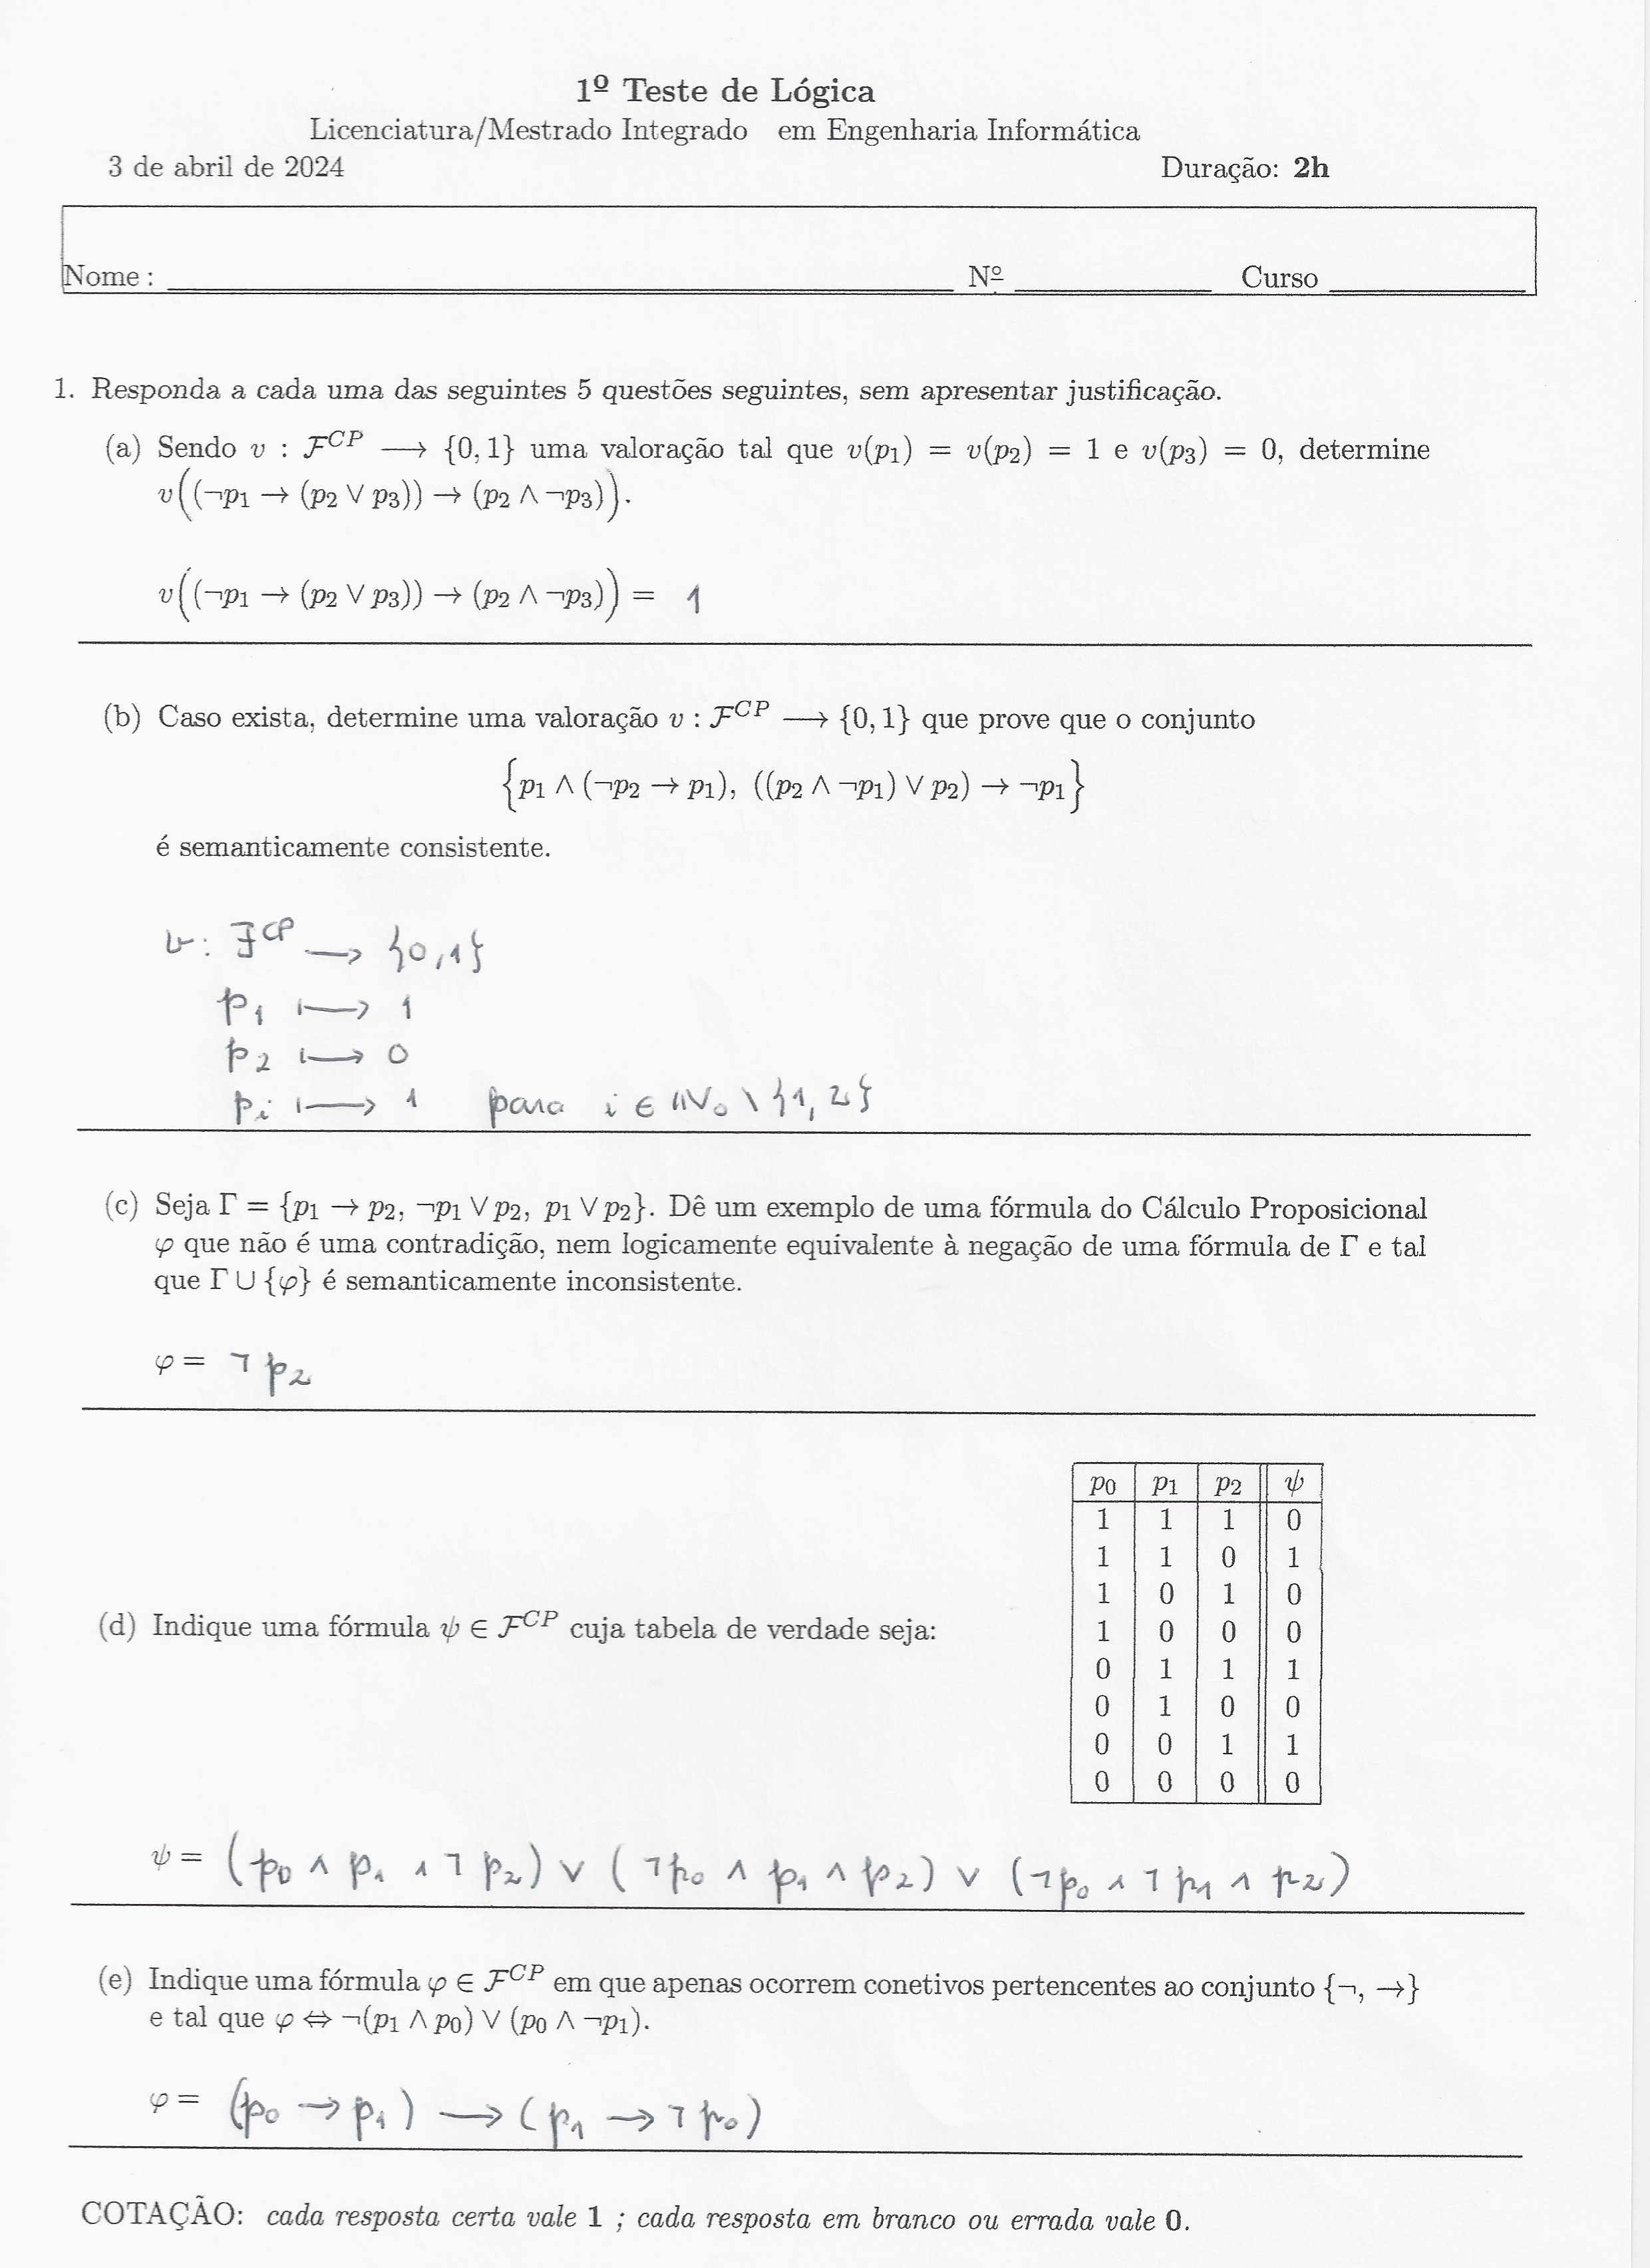 1º Teste de Lógica
Licenciatura/Mestrado Integrado em Engenharia Informática
3 de abril de 2024 Duração: 2h
Nome : Nº Curso
1. Responda a cada uma das seguintes 5 questões seguintes, sem apresentar justificação.
(a) Sendo v : ℱ^CP ⟶ {0, 1} uma valoração tal que v(p₁) = v(p₂) = 1 e v(p₃) = 0, determine
v((¬p₁ → (p₂ ∨ p₃)) → (p₂ ∧ ¬p₃)).
v((¬p₁ → (p₂ ∨ p₃)) → (p₂ ∧ ¬p₃)) = 1
(b) Caso exista, determine uma valoração v : ℱ^CP ⟶ {0, 1} que prove que o conjunto
{p₁ ∧ (¬p₂ → p₁), ((p₂ ∧ ¬p₁) ∨ p₂) → ¬p₁}
é semanticamente consistente.
v: ℱ^CP ⟶ {0,1}
p₁ ⟼ 1
p₂ ⟼ 0
pᵢ ⟼ 1 para i ∈ ℕ₀ \ {1, 2}
(c) Seja Γ = {p₁ → p₂, ¬p₁ ∨ p₂, p₁ ∨ p₂}. Dê um exemplo de uma fórmula do Cálculo Proposicional
φ que não é uma contradição, nem logicamente equivalente à negação de uma fórmula de Γ e tal
que Γ ∪ {φ} é semanticamente inconsistente.
φ = ¬p₂
p₀ p₁ p₂ ψ
1 1 1 0
1 1 0 1
1 0 1 0
(d) Indique uma fórmula ψ ∈ ℱ^CP cuja tabela de verdade seja:
1 0 0 0
0 1 1 1
0 1 0 0
0 0 1 1
0 0 0 0
ψ = (p₀ ∧ p₁ ∧ ¬p₂) ∨ (¬p₀ ∧ p₁ ∧ p₂) ∨ (¬p₀ ∧ ¬p₁ ∧ p₂)
(e) Indique uma fórmula φ ∈ ℱ^CP em que apenas ocorrem conetivos pertencentes ao conjunto {¬, →}
e tal que φ ⇔ ¬(p₁ ∧ p₀) ∨ (p₀ ∧ ¬p₁).
φ = (p₀ → p₁) ⟶ (p₁ → ¬p₀)
COTAÇÃO: cada resposta certa vale 1 ; cada resposta em branco ou errada vale 0.